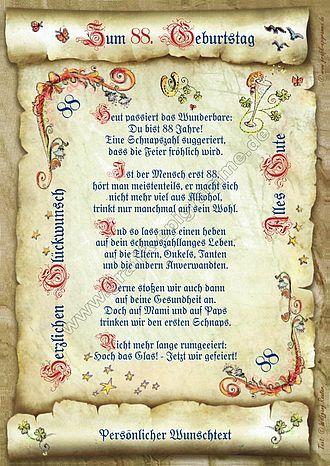 Zum 88. Geburtstag
88
Herzlichen Glückwunsch
Heut passiert das Wunderbare:
Du bist 88 Jahre!
Eine Schnapszahl suggeriert,
dass die Feier fröhlich wird.
Ist der Mensch erst 88,
hört man meistenteils, er macht sich
nicht mehr viel aus Alkohol,
trinkt nur manchmal auf sein Wohl.
Und so lass uns einen heben
auf dein schnapszahllanges Leben,
auf die Eltern, Onkels, Tanten
und die andern Anverwandten.
Gerne stoßen wir auch dann
auf deine Gesundheit an.
Doch auf Mami und auf Paps
trinken wir den ersten Schnaps.
Nicht mehr lange rumgeeiert:
Hoch das Glas! - Jetzt wir gefeiert!
Alles Gute
88
Persönlicher Wunschtext